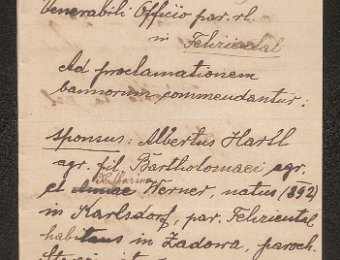 Venerabili Officio par. rl.
in Feliziental
Ad proclamationem
bannorum commendantur:
Sponsus: Albertus Hartl
agr. fil. Bartholomaei agr.
et Annae Werner, natus (892)
in Karlsdorf, par. Feliziental
habitans in Zadowa, paroch.